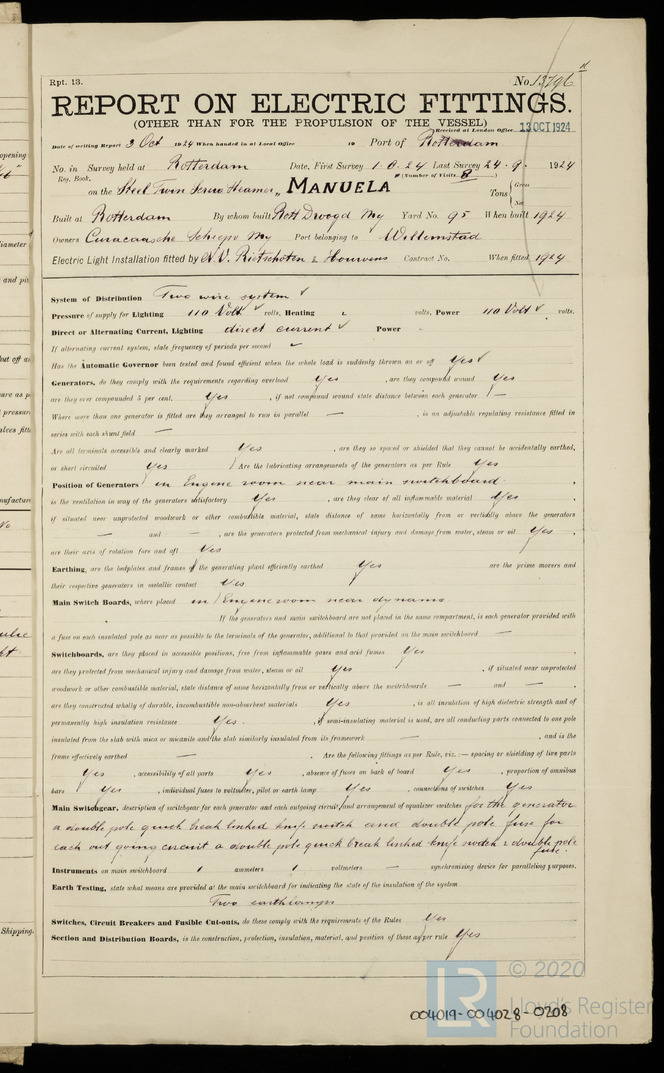 Rpt. 13.
No. 13796
REPORT ON ELECTRIC FITTINGS.
(OTHER THAN FOR THE PROPULSION OF THE VESSEL)
Received at London Office 13 OCT 1924
Date of writing Report 3 Oct 1924 When handed in at Local Office 19 Port of Rotterdam
No. in Survey held at Rotterdam Date, First Survey 1-8-24 Last Survey 24-9- 1924
Reg. Book. (Number of Visits 8)
on the Steel Twin Screw Steamer "MANUELA" Tons { Gross Net
Built at Rotterdam By whom built Rott Droogd My Yard No. 95 When built 1924
Owners Curacaosche Scheepv My Port belonging to Willemstad
Electric Light Installation fitted by N.V. Rietschoten & Houwens Contract No. When fitted 1924
System of Distribution Two wire system ✓
Pressure of supply for Lighting 110 Volt ✓ volts, Heating volts, Power 110 Volt ✓ volts.
Direct or Alternating Current, Lighting direct current ✓ Power -
If alternating current system, state frequency of periods per second
Has the Automatic Governor been tested and found efficient when the whole load is suddenly thrown on or off Yes ✓
Generators, do they comply with the requirements regarding overload Yes , are they compound wound Yes
are they over compounded 5 per cent. Yes , if not compound wound state distance between each generator —
Where more than one generator is fitted are they arranged to run in parallel — , is an adjustable regulating resistance fitted in
series with each shunt field —
Are all terminals accessible and clearly marked Yes , are they so spaced or shielded that they cannot be accidentally earthed,
or short circuited Yes Are the lubricating arrangements of the generators as per Rule Yes
Position of Generators in Engine room near main switchboard.
is the ventilation in way of the generators satisfactory Yes , are they clear of all inflammable material Yes ,
if situated near unprotected woodwork or other combustible material, state distance of same horizontally from or vertically above the generators
— and — , are the generators protected from mechanical injury and damage from water, steam or oil Yes ,
are their axes of rotation fore and aft Yes
Earthing, are the bedplates and frames of the generating plant efficiently earthed Yes are the prime movers and
their respective generators in metallic contact Yes
Main Switch Boards, where placed in Engine room near dynamo.
If the generators and main switchboard are not placed in the same compartment, is each generator provided with
a fuse on each insulated pole as near as possible to the terminals of the generator, additional to that provided on the main switchboard —
Switchboards, are they placed in accessible positions, free from inflammable gases and acid fumes Yes
are they protected from mechanical injury and damage from water, steam or oil Yes , if situated near unprotected
woodwork or other combustible material, state distance of same horizontally from or vertically above the switchboards — and — ,
are they constructed wholly of durable, incombustible non-absorbent materials Yes , is all insulation of high dielectric strength and of
permanently high insulation resistance Yes. , if semi-insulating material is used, are all conducting parts connected to one pole
insulated from the slab with mica or micanite and the slab similarly insulated from its framework — , and is the
frame effectively earthed — . Are the following fittings as per Rule, viz.:— spacing or shielding of live parts
Yes , accessibility of all parts Yes , absence of fuses on back of board Yes , proportion of omnibus
bars Yes , individual fuses to voltmeter, pilot or earth lamp Yes , connections of switches Yes
Main Switchgear, description of switchgear for each generator and each outgoing circuit, and arrangement of equalizer switches for the generator
a double pole quick break linked knife switch and double pole fuse for
each out going circuit a double pole quick break linked knife switch & double pole
fuse.
Instruments on main switchboard 1 ammeters 1 voltmeters — synchronising device for paralleling purposes.
Earth Testing, state what means are provided at the main switchboard for indicating the state of the insulation of the system
Two earthlamps
Switches, Circuit Breakers and Fusible Cut-outs, do these comply with the requirements of the Rules Yes
Section and Distribution Boards, is the construction, protection, insulation, material, and position of these as per rule Yes
LR © 2020
Lloyd's Register
Foundation
004019-004028-0208
opening
diameter
and pi
ure as p
pressure
alves fitt
Shipping.